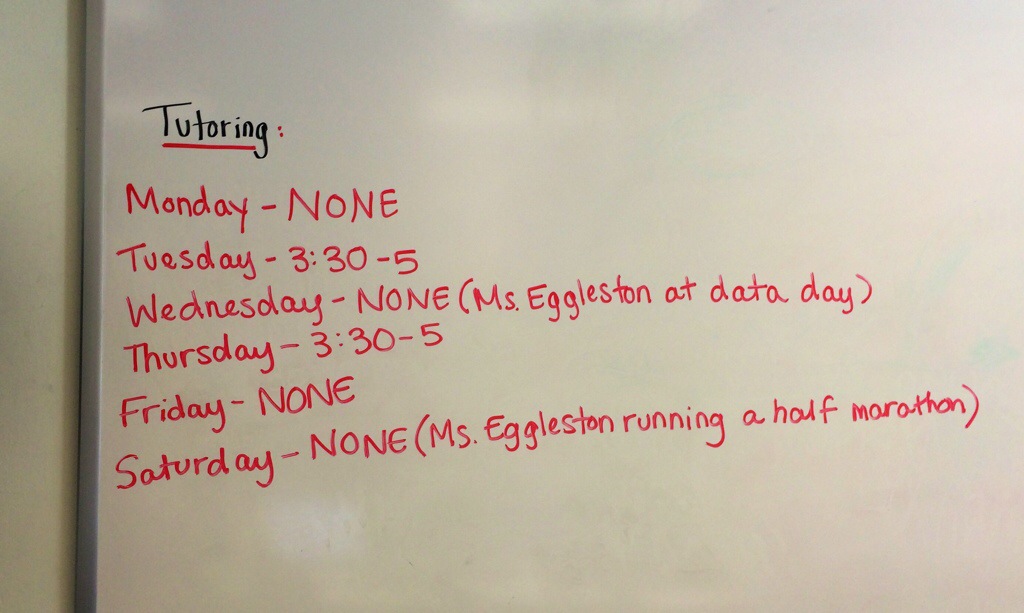 Tutoring:
Monday - NONE
Tuesday - 3:30-5
Wednesday - NONE (Ms. Eggleston at data day)
Thursday - 3:30-5
Friday - NONE
Saturday - NONE (Ms. Eggleston running a half marathon)